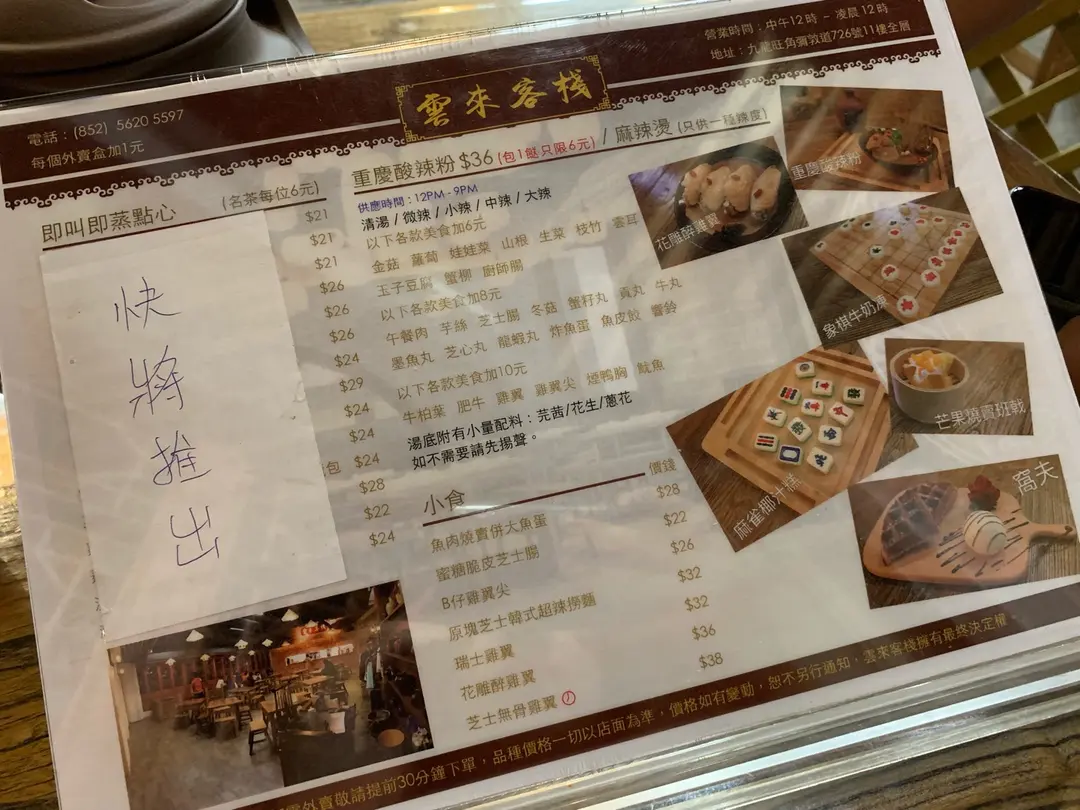 電話：(852) 5620 5597
每個外賣盒加1元
雲來客栈
營業時間：中午12時 - 凌晨12時
地址：九龍旺角彌敦道726號11樓全層
即叫即蒸點心 (名茶每位6元)
快
將
推
出
$21
$21
$21
$26
$26
$26
$24
$29
$24
$24
包 $24
$28
$22
$24
重慶酸辣粉 $36 (包1餸 只限6元) / 麻辣燙 (只供一種辣度)
供應時間：12PM - 9PM
清湯 / 微辣 / 小辣 / 中辣 / 大辣
以下各款美食加6元
金菇 蘿蔔 娃娃菜 山根 生菜 枝竹 雲耳
玉子豆腐 蟹柳 廚師腸
以下各款美食加8元
午餐肉 芋絲 芝士腸 冬菇 蟹籽丸 貢丸 牛丸
墨魚丸 芝心丸 龍蝦丸 炸魚蛋 魚皮餃 響鈴
以下各款美食加10元
牛柏葉 肥牛 雞翼 雞翼尖 煙鴨胸 魷魚
湯底附有小量配料：芫茜/花生/蔥花
如不需要請先揚聲。
小食 價錢
魚肉燒賣併大魚蛋 $28
蜜糖脆皮芝士腸 $22
B仔雞翼尖 $26
原塊芝士韓式超辣撈麵 $32
瑞士雞翼 $32
花雕醉雞翼 $36
芝士無骨雞翼 $38
重慶酸辣粉
花雕醉雞翼
象棋牛奶凍
芒果燒賣班戟
麻雀椰汁糕
窩夫
外賣敬請提前30分鐘下單，品種價格一切以店面為準，價格如有變動，恕不另行通知，雲來客栈擁有最終決定權。